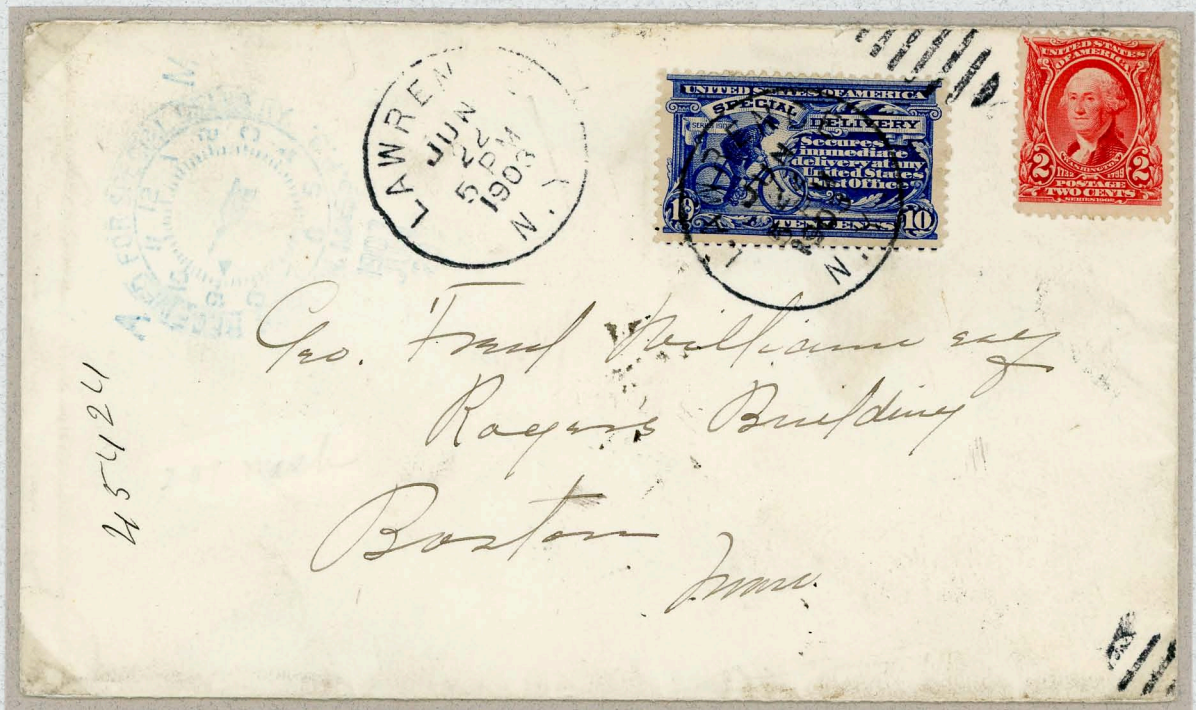 LAWREN
JUN
22
5 PM
1903
N.Y
UNITED STATES OF AMERICA
SPECIAL DELIVERY
Secures
immediate
delivery at any
United States
Post Office
10 TEN CENTS 10
UNITED STATES
OF AMERICA
WASHINGTON
2 1732 1799 2
POSTAGE
TWO CENTS
SERIES 1902
Geo. Fred Williams esq
Rogers Building
Boston
Mass.
45424